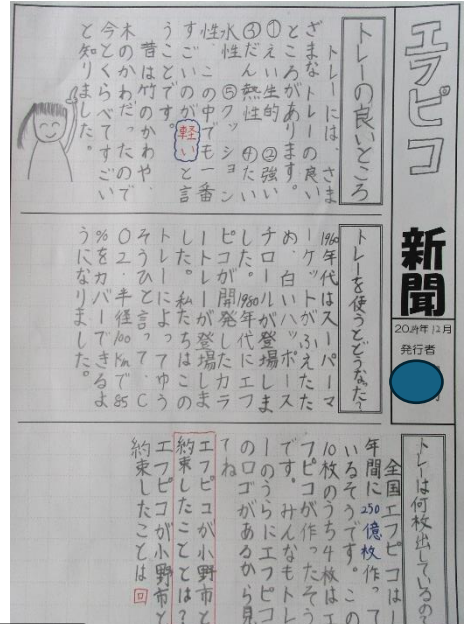 エフピコ
新聞
年12月
発行者
トレーの良いところ
トレーには、さま
ざまなトレーの良い
ところがあります。
①えい生的 ②強い
③だん熱性 ④たい
水性 ⑤クッション
性 この中でも一番
すごいのが軽いと言
うことです。
昔は竹のかわや、
木のかわだったので
今とくらべてすごい
と知りました。
トレーを使うとどうなった?
1960年代はスーパーマ
ーケットがふえたた
め、白いハッポース
チロールが登場しま
した。1980年代にエフ
ピコが開発したカラ
ートレーが登場しま
した。私たちはこの
トレーによってゆう
そうひと言って、C
O2・半径100Kmで85
%をカバーできるよ
うになりました。
トレーは何枚出しているの?
全国エフピコは1
年間に250億枚作って
いるそうです。この
10枚のうち4枚はエ
フピコが作ったそう
です。みんなもトレ
ーのうらにエフピコ
のロゴがあるから見
てね
エフピコが小野市と
約束したこととは?
エフピコが小野市と
約束したことは回